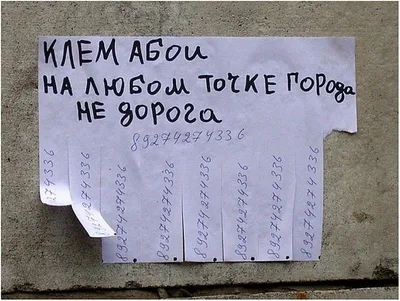 КЛЕМ АБОИ
НА ЛЮБОМ ТОЧКЕ ГОРОДА
НЕ ДОРОГА
89274274336
274336
274336
89274274336
89274274336
89274274336
89274274336
89274274336
89274274336